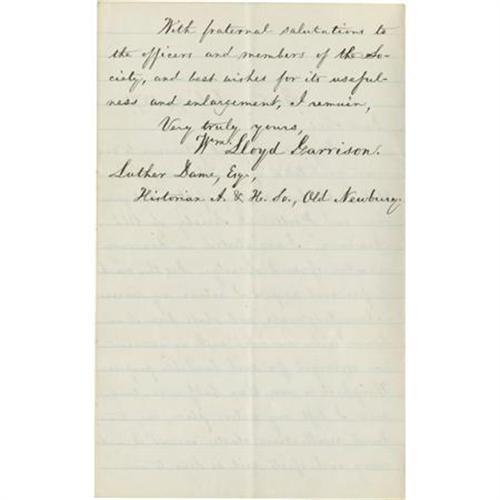 With fraternal salutations to
the officers and members of the So-
ciety, and best wishes for its useful-
ness and enlargement, I remain,
Very truly yours,
Wm. Lloyd Garrison.
Luther Dame, Esq.,
Historian A. & H. So., Old Newbury.